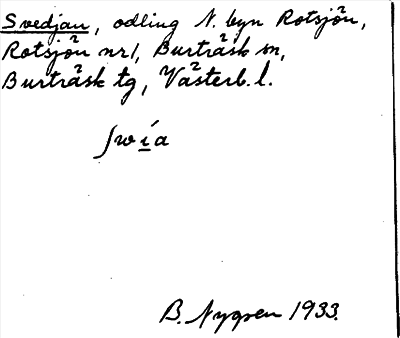 Svedjan, odling N. byn Rotsjön,
Rotsjön nr 1, Burträsk sn,
Burträsk tg, Västerb. l.
ʃwí̲a
B. Nygren 1933.